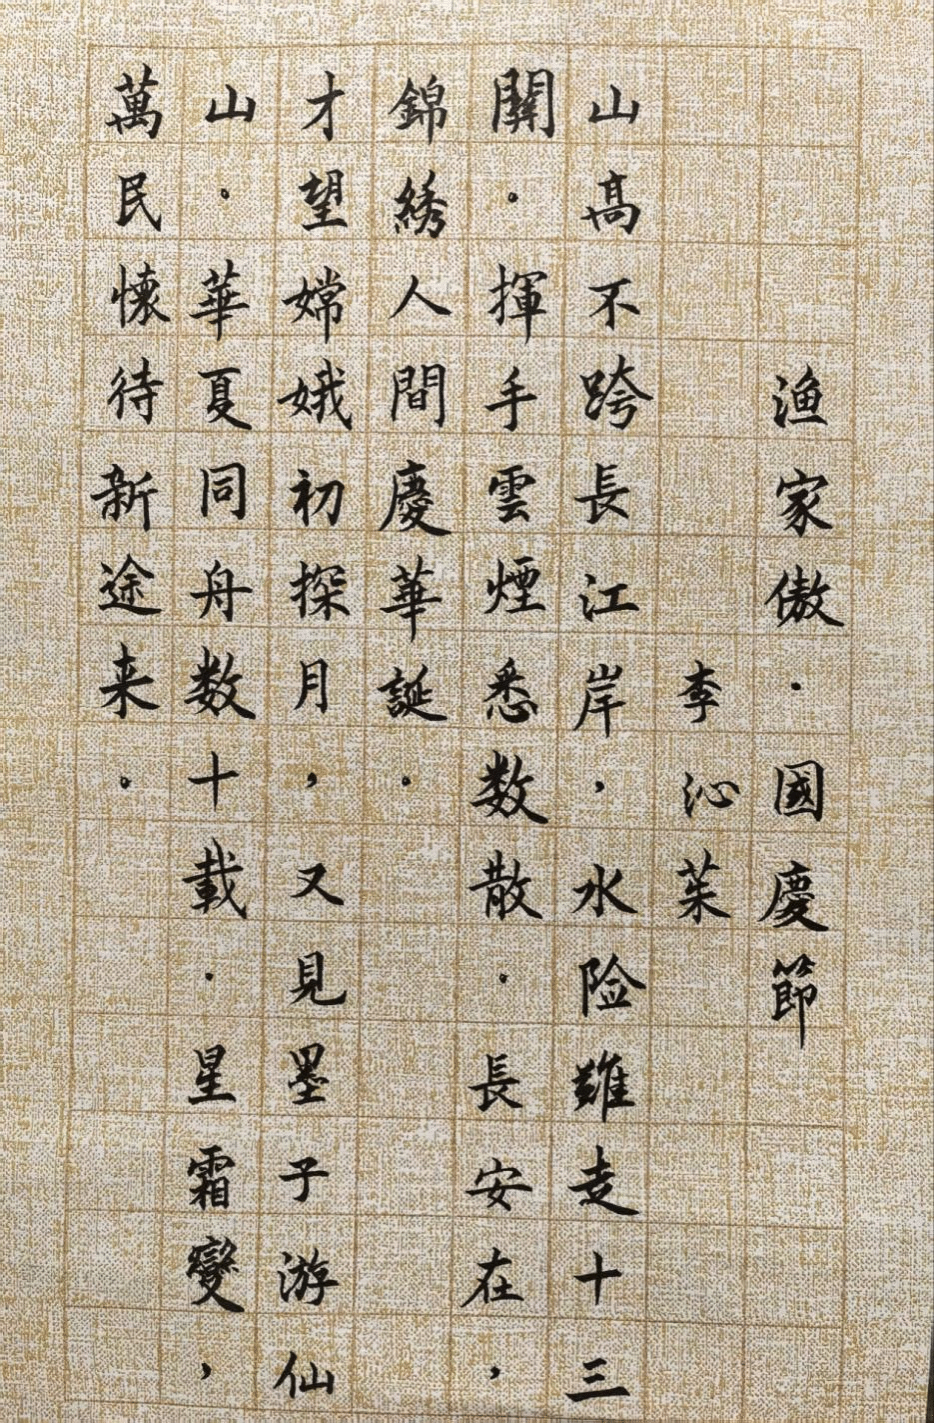 渔家傲·國慶節
李沁茱
山高不跨長江岸，水险難走十三
關。揮手雲煙悉数散。長安在，
錦綉人間慶華誕。
才望嫦娥初探月，又見墨子游仙
山。華夏同舟数十載。星霜變，
萬民懷待新途来。